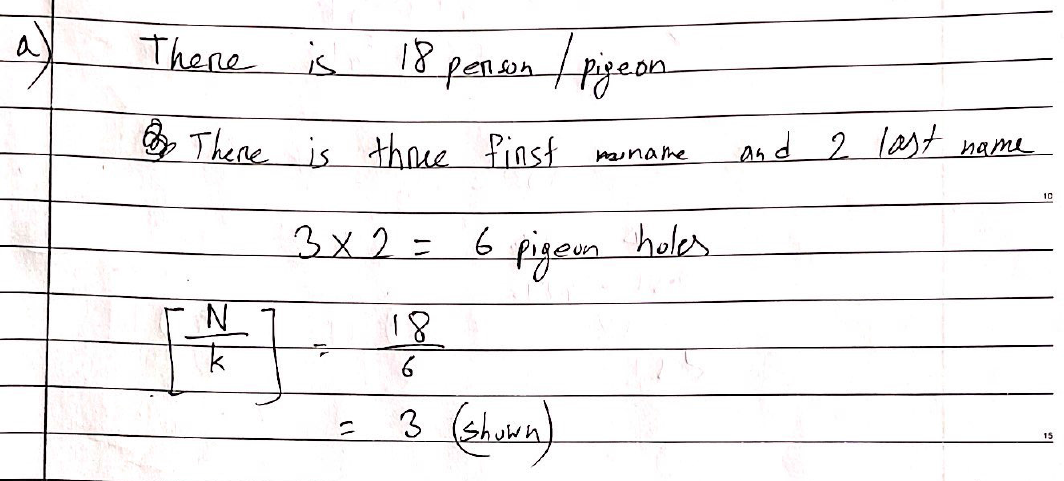 a) There is 18 person / pigeon
There is three first name and 2 last name
10
3 × 2 = 6 pigeon holes
[N/k] = 18/6
= 3 (shown)
15